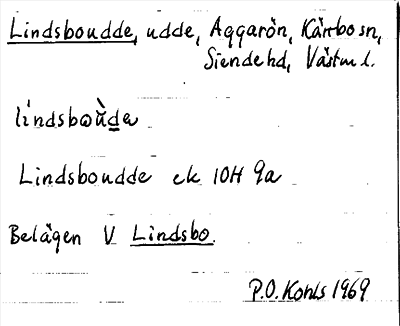 Lindsboudde, udde, Aggarön, Kärrbo sn,
Siende hd, Västml.
líndsboùde
Lindsboudde ek 10H 9a
Belägen V Lindsbo.
P.O. Kohls 1969